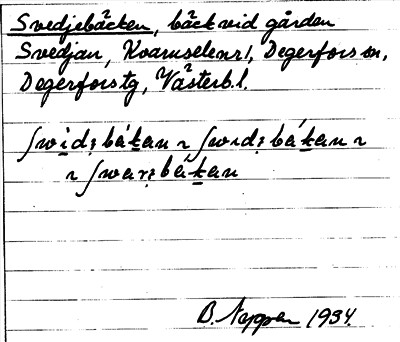 Svedjebäcken, bäck vid gården
Svedjan, Kvarnselenr1, Degerfors sn,
Degerforstg, Västerb.l.
ʃwidʒ bákan ~ ʃwidʒ bákan ~
~ ʃwarʒ bákan
B. 1934.